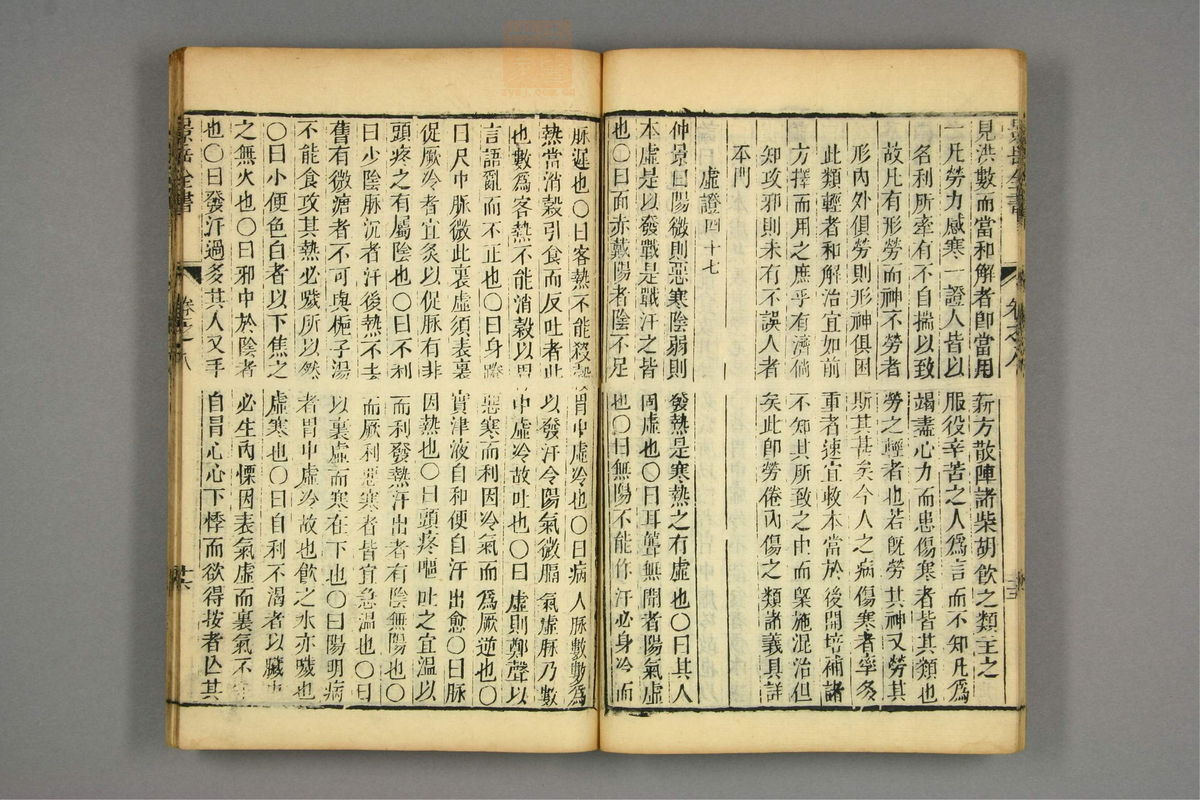 見洪數而當和解者卽當用新方散陣諸柴胡飲之類主之
一凡勞力感寒一證人皆以服役辛苦之人爲言而不知凡爲
名利所牽有不自揣以致竭盡心力而患傷寒者皆其類也
故凡有形勞而神不勞者勞之輕者也若旣勞其神又勞其
形內外俱勞則形神俱困斯其甚矣今人之病傷寒者率多
此類輕者和解治宜如前重者速宜救本當於後開培補諸
方擇而用之庶乎有濟倘不知其所致之由而槩施混治但
知攻邪則未有不誤人者矣此卽勞倦內傷之類諸義具詳
本門
虛證四十七
仲景曰陽微則惡寒陰弱則發熱是寒熱之有虛也○曰其人
本虛是以發戰是戰汗之皆因虛也○曰耳聾無聞者陽氣虛
也○曰面赤戴陽者陰不足也○曰無陽不能作汗必身冷而
脉遲也○曰客熱不能殺穀胃中虛冷也○曰病人脉數數爲
熱當消穀引食而反吐者此以發汗令陽氣微膈氣虛脉乃數
也數爲客熱不能消穀以胃中虛冷故吐也○曰虛則鄭聲以
言語亂而不正也○曰身踡惡寒而利因冷氣而爲厥逆也○
曰尺中脉微此裏虛須表裏實津液自和便自汗出愈○曰脉
促厥冷者宜灸以促脉有非因熱也○曰頭疼嘔吐之宜溫以
頭疼之有屬陰也○曰不利而利發熱汗出者有陰無陽也○
曰少陰脉沉者汗後熱不去而厥利惡寒者皆宜急温也○曰
舊有微溏者不可與梔子湯以裏虛而寒在下也○曰陽明病
不能食攻其熱必噦所以然者胃中虛冷故也飲之水亦噦也
○曰小便色白者以下焦之虛寒也○曰自利不渴者以臟
之無火也○曰邪中於陰者必生內慄因表氣虛而裏氣不
也○曰發汗過多其人叉手自冒心心下悸而欲得按者以其
景岳全書
卷之八
景岳全書
卷之八